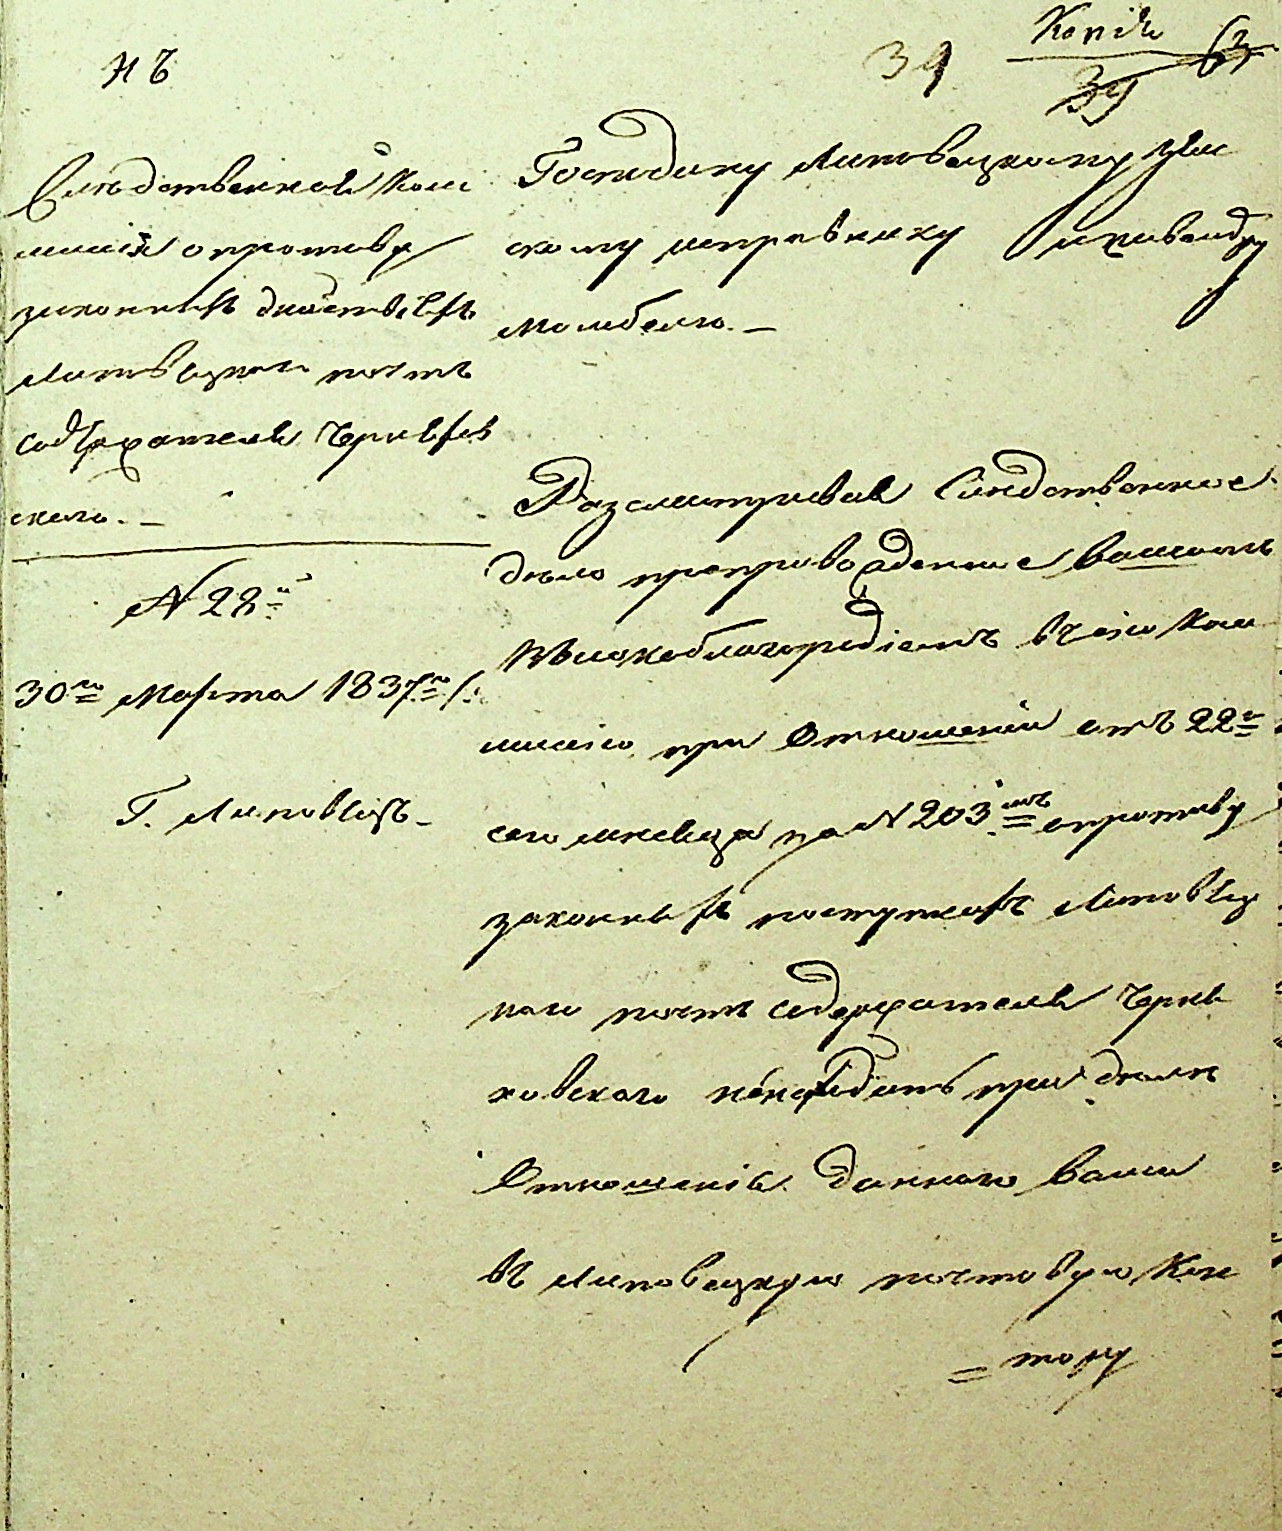 НЪ
39
Копія
39
63
Следственной Комi
мисiи о противу
законныхъ действiяхъ
Липовецкаго почтъ
содержателя Черняхов
скаго. –
N 28й
30го Марта 1837го г.
Г. Липовецъ –
Господину Липовецкому Зем
скому исправнику
–
Разсматривая Следственное
дело препровожденное вашимъ
высокоблагородіемъ въ сію Ком
мисію, при Отношеніи отъ 22го
сего месяца за N 203мъ о противу
законныхъ поступкахъ Липовец
каго почтъ содержателя Черня
ховскаго, не находитъ при деле
Отношенія даннаго вами
въ Липовецкую почтовую Кон
= тору